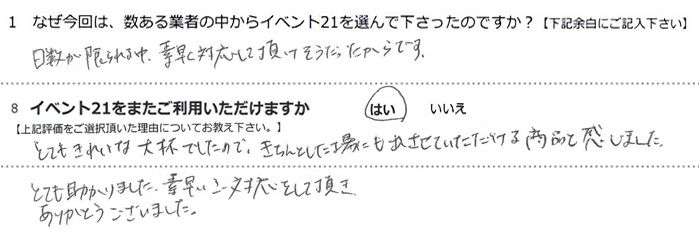 1 なぜ今回は、数ある業者の中からイベント21を選んで下さったのですか？【下記余白にご記入下さい】
日数が限られる中、素早く対応して頂けそうだったからです。
8 イベント21をまたご利用いただけますか はい いいえ
【上記評価をご選択頂いた理由についてお教え下さい。】
とてもきれいな大杯でしたので、きちんとした場にも出させていただける商品と感じました。
とても助かりました。素早いご対応をして頂き
ありがとうございました。